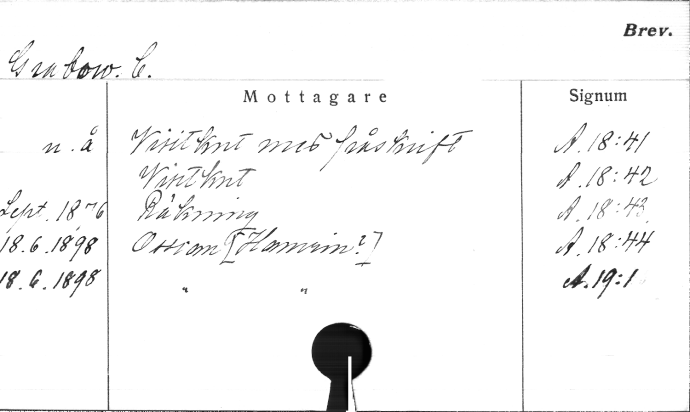 Brev.
Grabow. C.
Mottagare Signum
n.å Visitkort med påskrift A. 18:41
Visitkort A. 18:42
Sept. 1876 Räkning A. 18:43
18.6.1898 Ossian [Hamrin?] A. 18:44
18.6.1898 " " A. 19:1